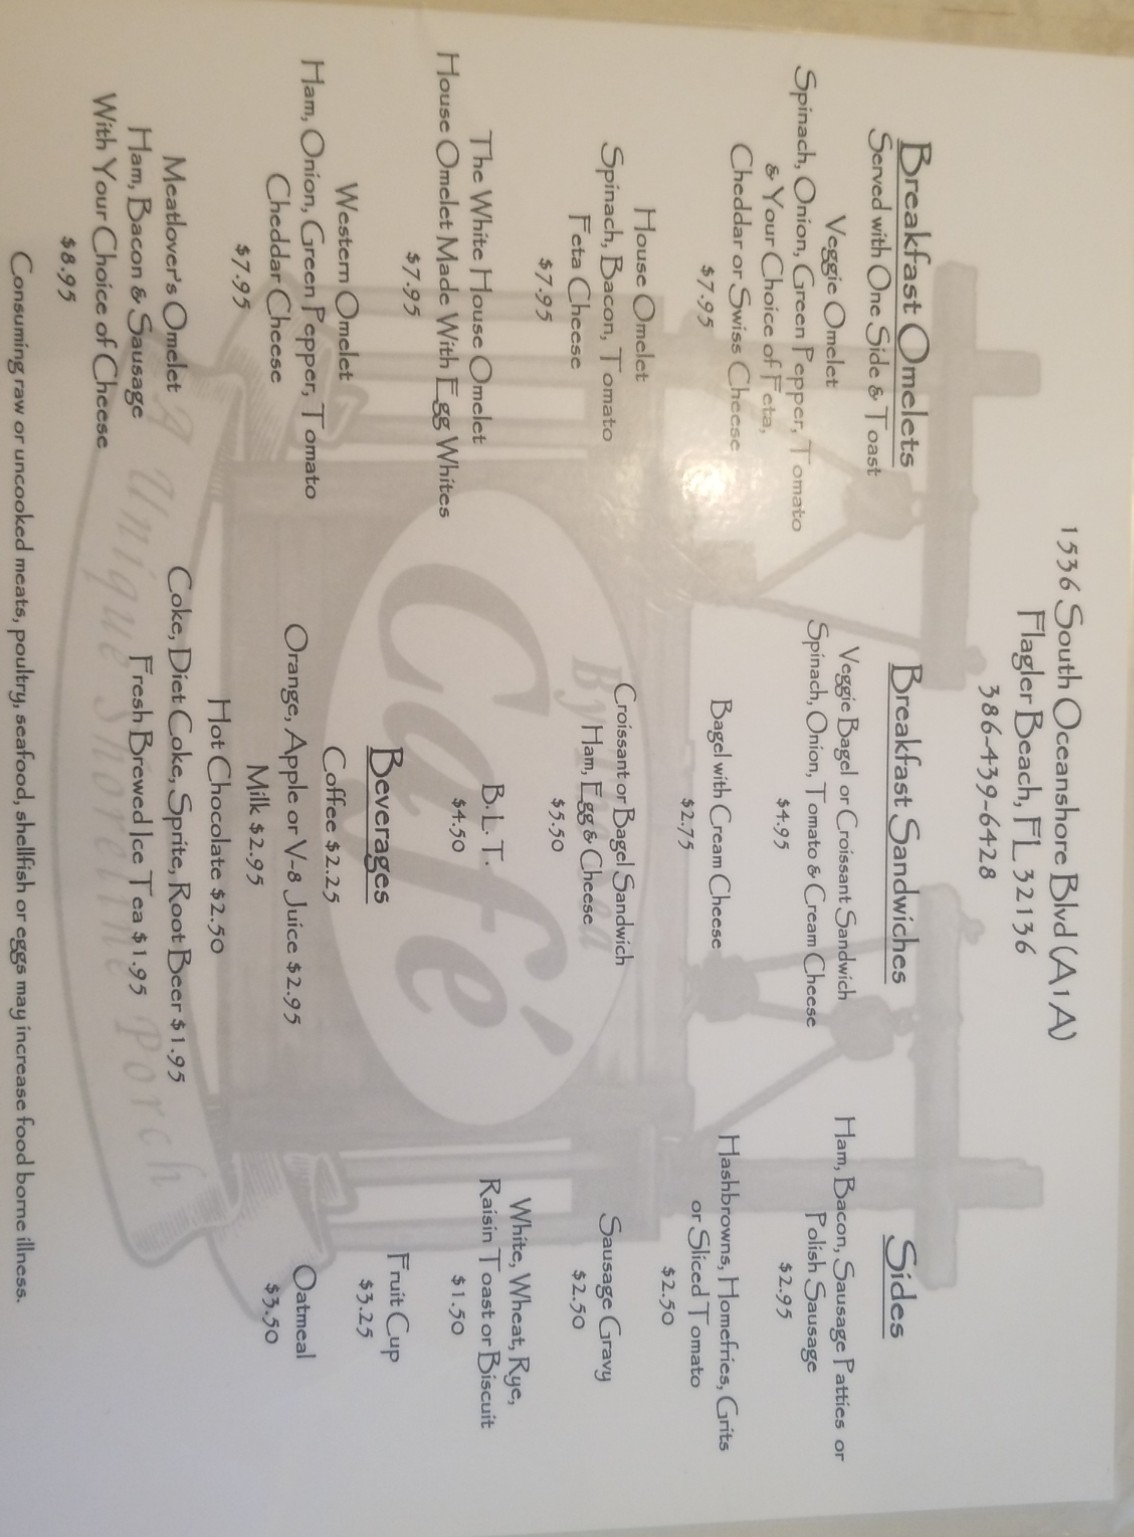 1536 South Oceanshore Blvd (A1A)
Flagler Beach, FL 32136
386-439-6428
Breakfast Omelets
Served with One Side & Toast
Veggie Omelet
Spinach, Onion, Green Pepper, Tomato
& Your Choice of Feta,
Cheddar or Swiss Cheese
$7.95
House Omelet
Spinach, Bacon, Tomato
Feta Cheese
$7.95
The White House Omelet
House Omelet Made With Egg Whites
$7.95
Western Omelet
Ham, Onion, Green Pepper, Tomato
Cheddar Cheese
$7.95
Meatlover's Omelet
Ham, Bacon & Sausage
With Your Choice of Cheese
$8.95
Breakfast Sandwiches
Veggie Bagel or Croissant Sandwich
Spinach, Onion, Tomato & Cream Cheese
$4.95
Bagel with Cream Cheese
$2.75
Croissant or Bagel Sandwich
Ham, Egg & Cheese
$5.50
B.L.T.
$4.50
Beverages
Coffee $2.25
Orange, Apple or V-8 Juice $2.95
Milk $2.95
Hot Chocolate $2.50
Coke, Diet Coke, Sprite, Root Beer $1.95
Fresh Brewed Ice Tea $1.95
Sides
Ham, Bacon, Sausage Patties or
Polish Sausage
$2.95
Hashbrowns, Homefries, Grits
or Sliced Tomato
$2.50
Sausage Gravy
$2.50
White, Wheat, Rye,
Raisin Toast or Biscuit
$1.50
Fruit Cup
$3.25
Oatmeal
$3.50
Café
A Unique Shoreline Porch
Consuming raw or uncooked meats, poultry, seafood, shellfish or eggs may increase food borne illness.